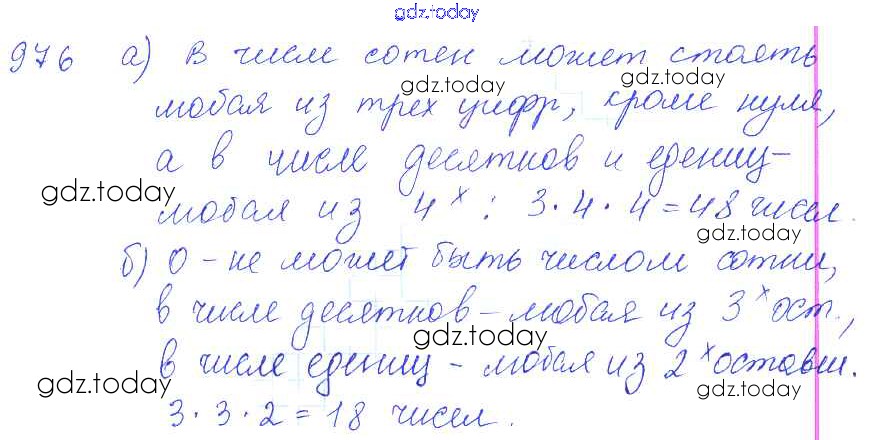 gdz.today
976 а) В числ сотен может стоять
gdz.today gdz.today
любая из трех цифр, кроме нуля,
а в числе десятков и едениц-
gdz.today
любая из 4х : 3·4·4=48 чисел.
gdz.today
б) 0 - не может быть числом сотни,
в числе десятков - любая из 3х ост.,
gdz.today
в числе едениц - любая из 2х оставш.
gdz.today gdz.today
3·3·2=18 чисел.